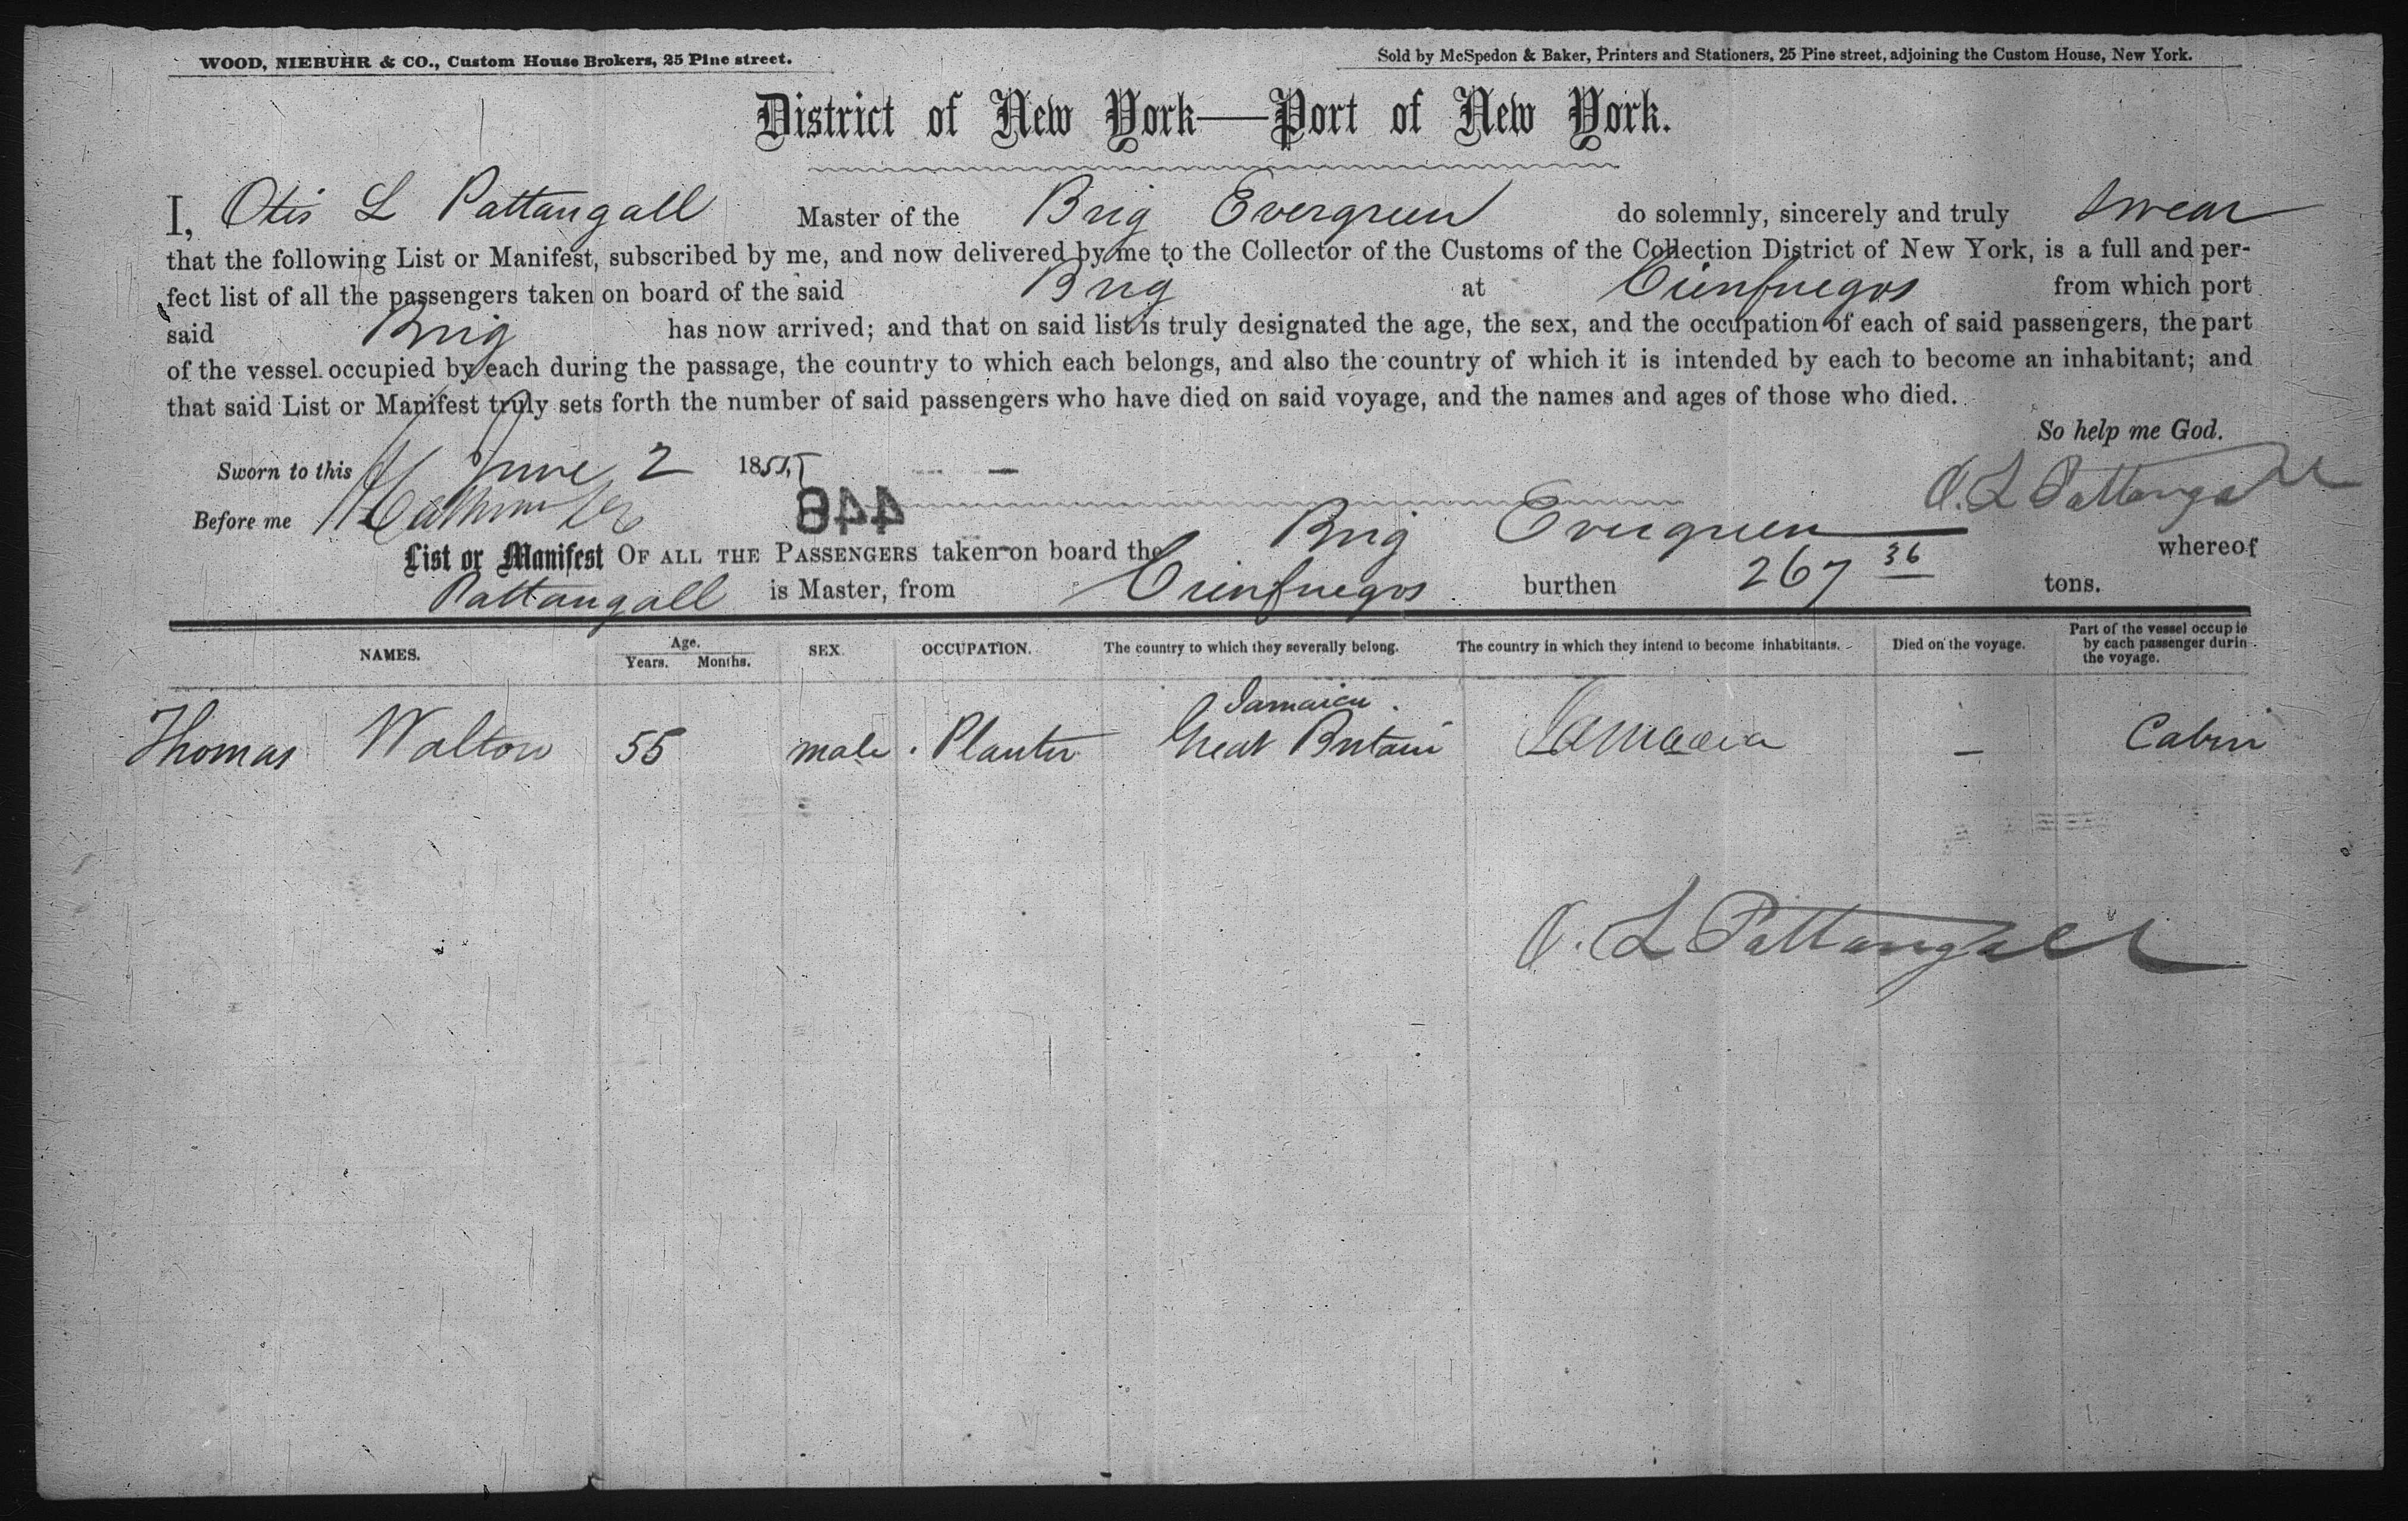 WOOD, NIEBUHR & CO., Custom House Brokers, 25 Pine street.
Sold by McSpedon & Baker, Printers and Stationers, 25 Pine street, adjoining the Custom House, New York.
District of New York—Port of New York.
I, Otis L Pattangall Master of the Brig Evergreen do solemnly, sincerely and truly swear
that the following List or Manifest, subscribed by me, and now delivered by me to the Collector of the Customs of the Collection District of New York, is a full and per-
fect list of all the passengers taken on board of the said Brig at Cienfuegos from which port
said Brig has now arrived; and that on said list is truly designated the age, the sex, and the occupation of each of said passengers, the part
of the vessel occupied by each during the passage, the country to which each belongs, and also the country of which it is intended by each to become an inhabitant; and
that said List or Manifest truly sets forth the number of said passengers who have died on said voyage, and the names and ages of those who died.
So help me God.
Sworn to this June 2 1855
O. L Pattangall
Before me
448
List or Manifest OF ALL THE PASSENGERS taken on board the Brig Evergreen whereof
Pattangall is Master, from Cienfuegos burthen 267 36 tons.
NAMES. Age. Years. Months. SEX. OCCUPATION. The country to which they severally belong. The country in which they intend to become inhabitants. Died on the voyage. Part of the vessel occupie by each passenger durin the voyage.
Jamaica
Thomas Walton 55 male Planter Great Britain Jamaica — Cabin
O. L Pattangall